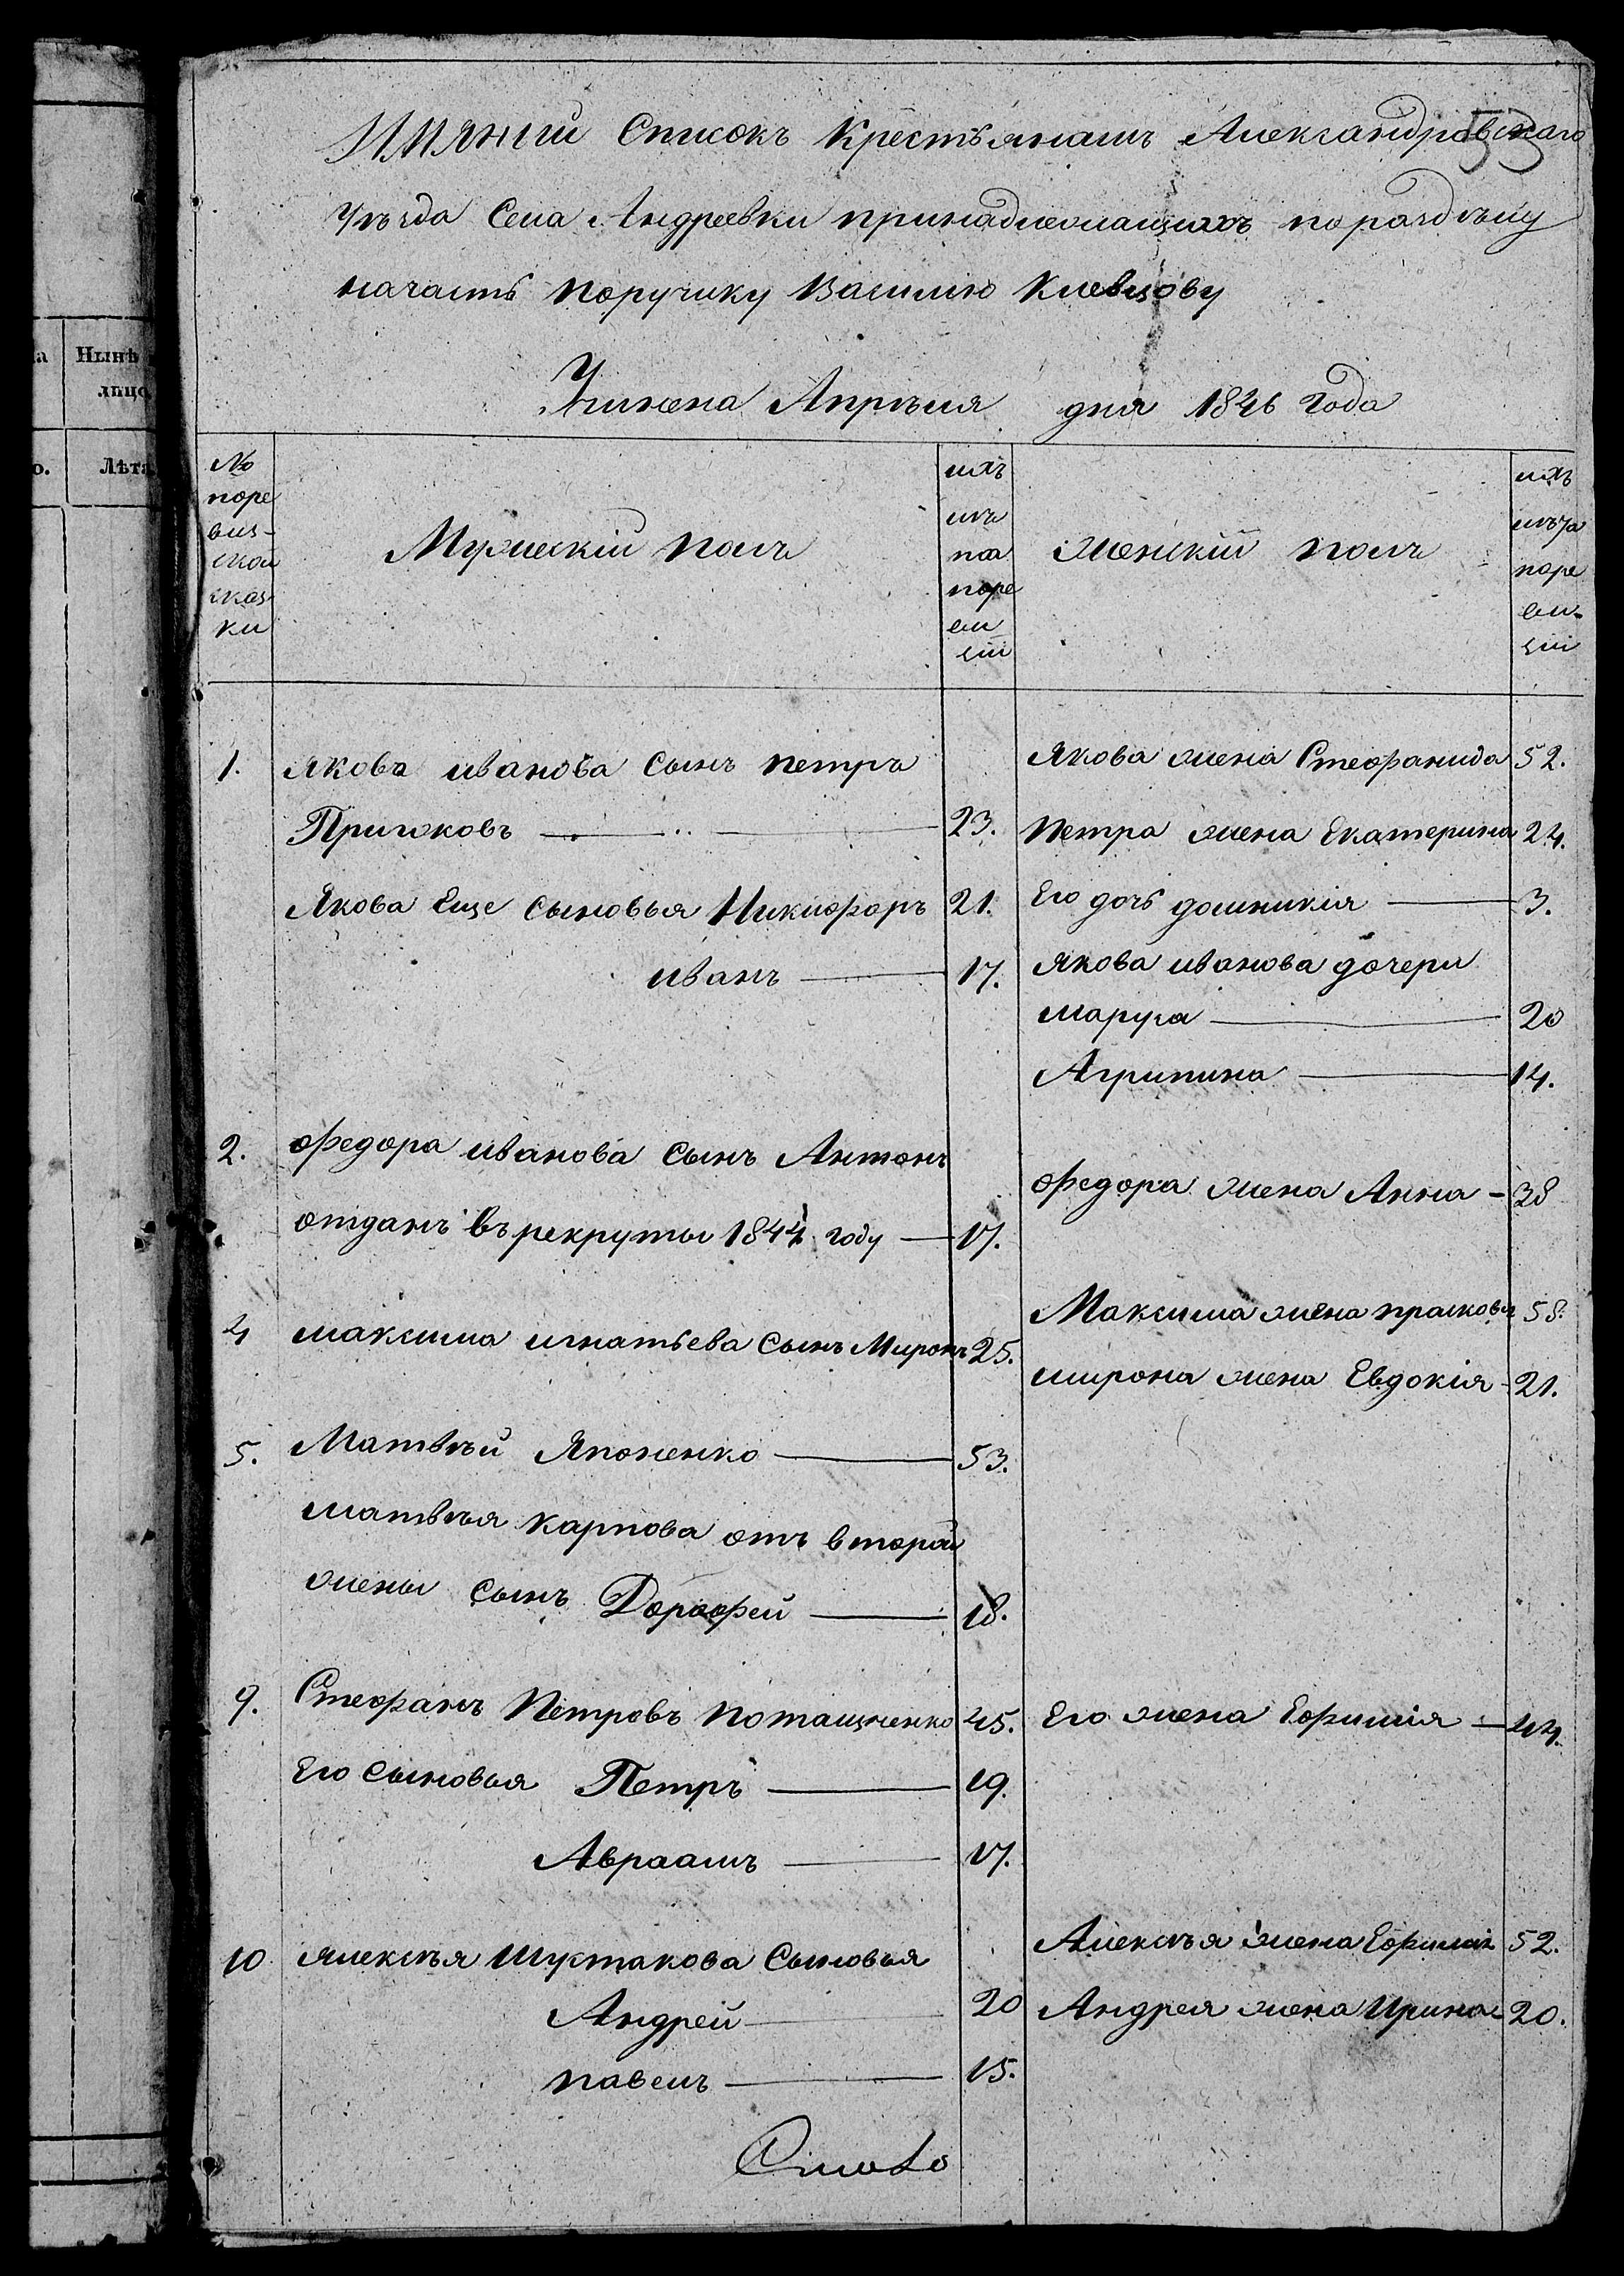 Имянной Списокъ Крестьянамъ Александровскаго
53
Уѣзда Села Андреевки принадлежащихъ по раздѣлу
начасть Поручику Василию Клевцову
Учинена Апрѣля дня 1846 Года
а
Нынѣ
лицо
о.
Лѣта
№ поре виз-ской сказ ки
Мужескій полъ
ихъ лѣ та поре ви зіи
Женскій полъ
ихъ лѣта поре ви- зіи
1. Якова иванова Сынъ петръ
Якова жена Стефанида 52.
23. Петра жена Екатерина 24.
Якова Еще сыновья Никифоръ 21. Его дочь домникія 3.
иванъ 17. Якова иванова дочери
20
Агрипина 14.
2. Федора иванова Сынъ Антонъ
Федора жена Анна - 38
отданъ въ рекруты 1844 году 17.
4 максима игнатьева Сынъ Миронъ 25.
Максима жена прасковья 58.
мирона жена Евдокія - 21.
5. Матвѣй Японенко 53.
матвѣя карпова отъ второй
жены сынъ Дорофей 18.
9. Стефанъ Петровъ Поташненко 45. Его жена Ефимія 44.
Его Сыновья Петръ 19.
Авраамъ 17.
10 Алексѣя Шустакова Сыновья
Алексѣя жена Ефимія 52.
Андрей 20 Андрея жена Ирина 20.
павелъ 15.